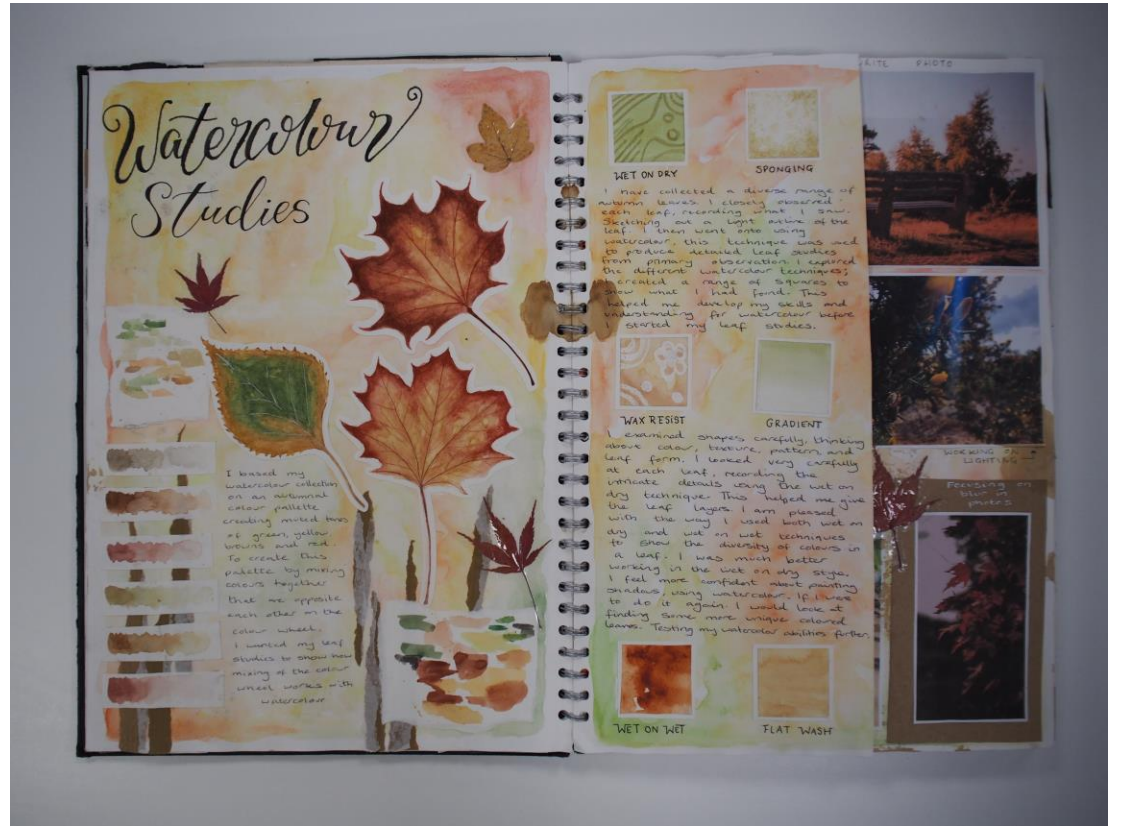 Watercolour
Studies
I based my
watercolour collection
on an autumnal
colour pallette
creating muted tones
of green, yellow
browns and red.
To create this
palette by mixing
colours together
that are opposite
each other on the
colour wheel.
I wanted my leaf
studies to show how
mixing of the colour
wheel works with
watercolour
WET ON DRY
SPONGING
I have collected a diverse range of
autumn leaves. I closely observed
each leaf, recording what I saw.
Sketching out a light outline of the
leaf. I then went onto using
watercolour, this technique was used
to produce detailed leaf studies
from primary observation. I explored
the different watercolour techniques;
I created a range of squares to
show what I had found. This
helped me develop my skills and
understanding for watercolour before
I started my leaf studies.
WAX RESIST
GRADIENT
I examined shapes carefully, thinking
about colour, texture, pattern, and
leaf form. I looked very carefully
at each leaf, recording the
intricate details using the wet on
dry technique. This helped me give
the leaf layers. I am pleased
with the way I used both wet on
dry and wet on wet techniques
to show the diversity of colours in
a leaf. I was much better
working in the wet on dry style.
I feel more confident about painting
shadows, using watercolour. If I were
to do it again. I would look at
finding some more unique coloured
leaves. Testing my watercolor abilities further.
WET ON WET
FLAT WASH
PHOTO
WORKING ON
LIGHTING
Focusing on
blur in
photos